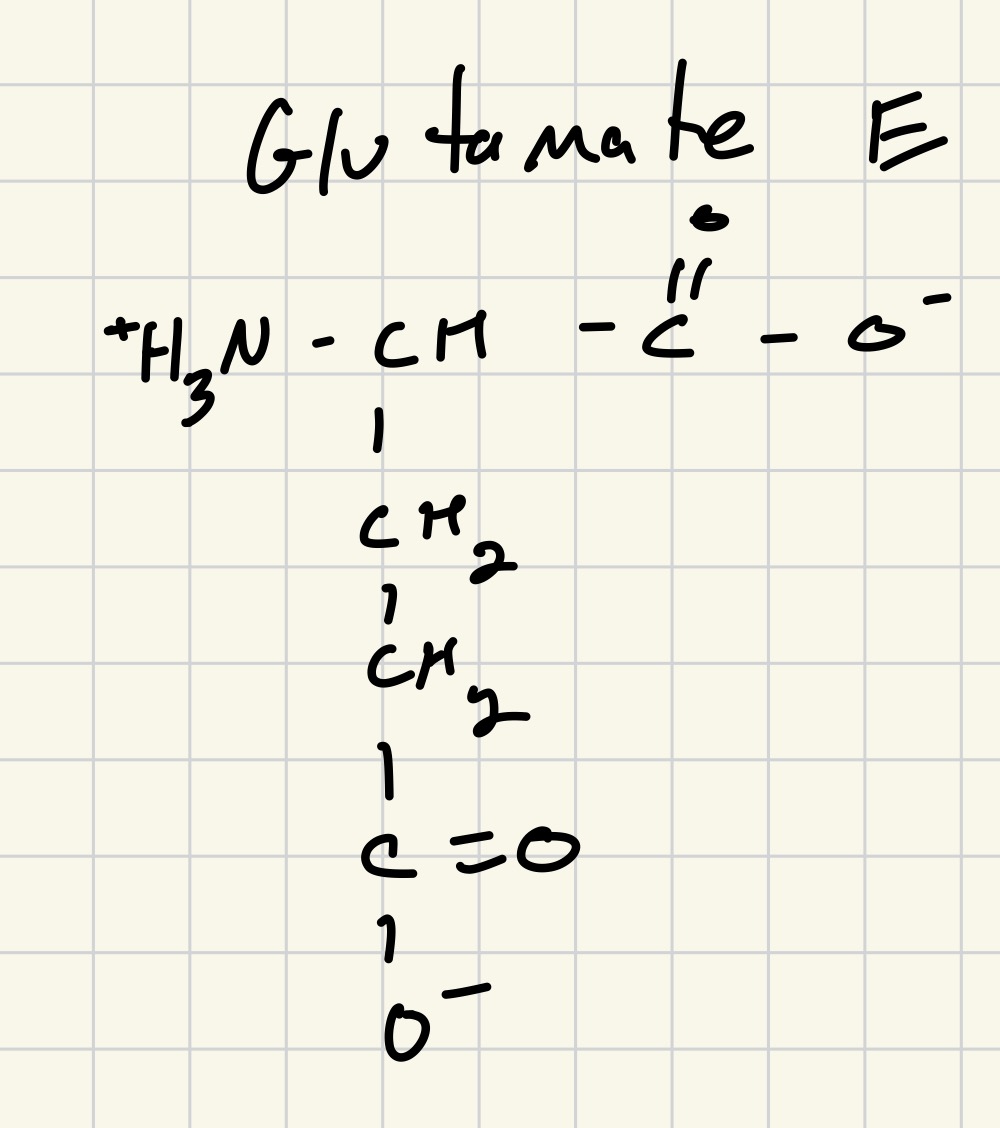 Glutamate E
O
||
⁺H₃N - CH - C - O⁻
|
CH₂
|
CH₂
|
C = O
|
O⁻